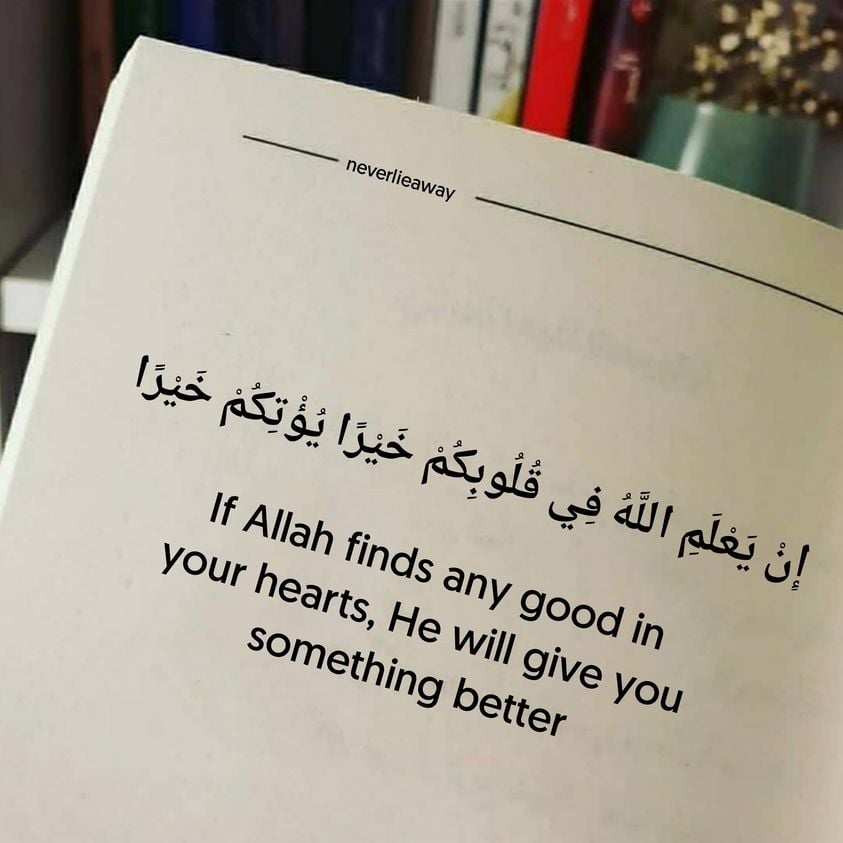 neverlieaway
إِنْ يَعْلَمِ اللَّهُ فِي قُلُوبِكُمْ خَيْرًا يُؤْتِكُمْ خَيْرًا
If Allah finds any good in
your hearts, He will give you
something better